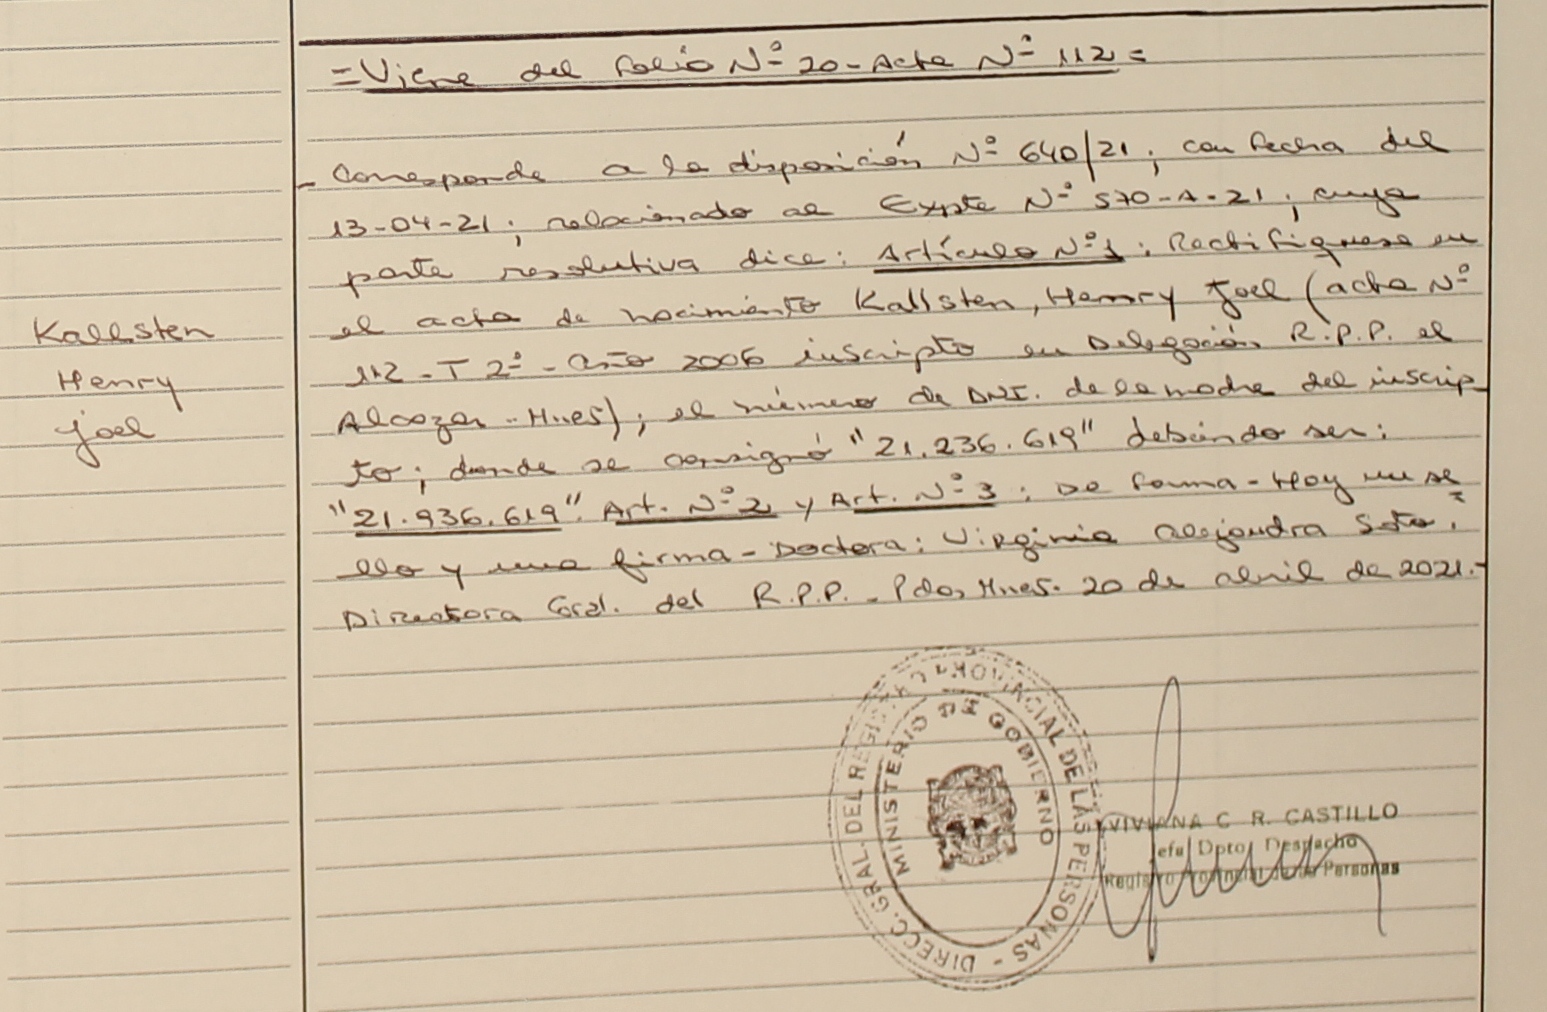 =Viene del Folio Nº 20-Acta Nº 112=
- Corresponde a la disposición Nº 640/21; con fecha del
13-04-21; relacionado al Expte Nº 570-A-21; cuya
parte resolutiva dice: Artículo Nº1: Rectifiquese en
el acta de nacimiento Kallsten, Henry Joel (acta Nº
112 - T 2º - año 2006 inscripto en Delegación R.P.P. el
Alcazar - Mnes); el número de DNI. de la madre del inscrip-
to; donde se consignó "21.236.619" debiendo ser:
"21.936.619". Art. Nº 2 y Art. Nº 3: De forma - Hay un se
llo y una firma - Doctora: Virginia Alejandra Soto.
Directora Gral. del R.P.P. - Pdas, Mnes. 20 de abril de 2021.-
Kallsten
Henry
Joel
DIRECC. GRAL. DEL REGISTRO PROVINCIAL DE LAS PERSONAS -
MINISTERIO DE GOBIERNO
VIVIANA C R. CASTILLO
Jefa Dpto. Despacho
Registro Provincial de las Personas